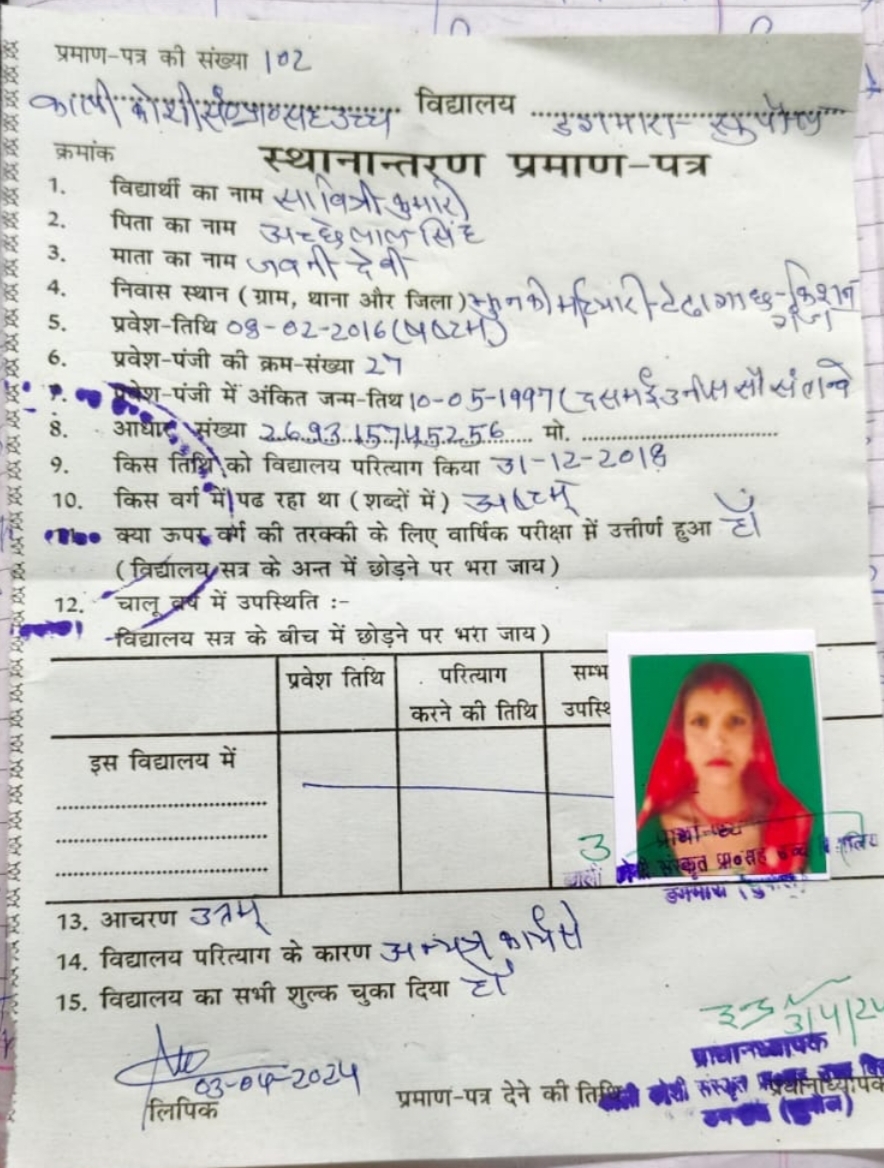 प्रमाण-पत्र की संख्या 102
विद्यालय डगमारा- सुपौल
क्रमांक स्थानान्तरण प्रमाण-पत्र
1. विद्यार्थी का नाम सावित्री कुमारी
2. पिता का नाम अच्छेलाल सिंह
3. माता का नाम जवनी देवी
4. निवास स्थान (ग्राम, थाना और जिला) टेढागाछ-किशन
गंज
5. प्रवेश-तिथि 08-02-2016 (षष्टम)
6. प्रवेश-पंजी की क्रम-संख्या 27
7. प्रवेश-पंजी में अंकित जन्म-तिथ 10-05-1997 (दस मई उनीस सौ संतान्वे
8. आधार संख्या 269315745256 मो.
9. किस तिथि को विद्यालय परित्याग किया 31-12-2018
10. किस वर्ग में पढ रहा था (शब्दों में) अष्टम्
11. क्या ऊपर वर्ग की तरक्की के लिए वार्षिक परीक्षा में उत्तीर्ण हुआ हाँ
(विद्यालय सत्र के अन्त में छोड़ने पर भरा जाय)
12. चालू वर्ष में उपस्थिति :-
विद्यालय सत्र के बीच में छोड़ने पर भरा जाय)
प्रवेश तिथि परित्याग सम्भ
करने की तिथि उपस्थि
इस विद्यालय में
संस्कृत प्रा०सह
डगमारा
13. आचरण उत्तम्
14. विद्यालय परित्याग के कारण अन्यत्र कार्य से
15. विद्यालय का सभी शुल्क चुका दिया हाँ
3/4/24
प्राधानध्यापक
03-04-2024
प्रमाण-पत्र देने की तिथि कोशी संस्कृत प्रधानाध्यापक
लिपिक (सुपौल)